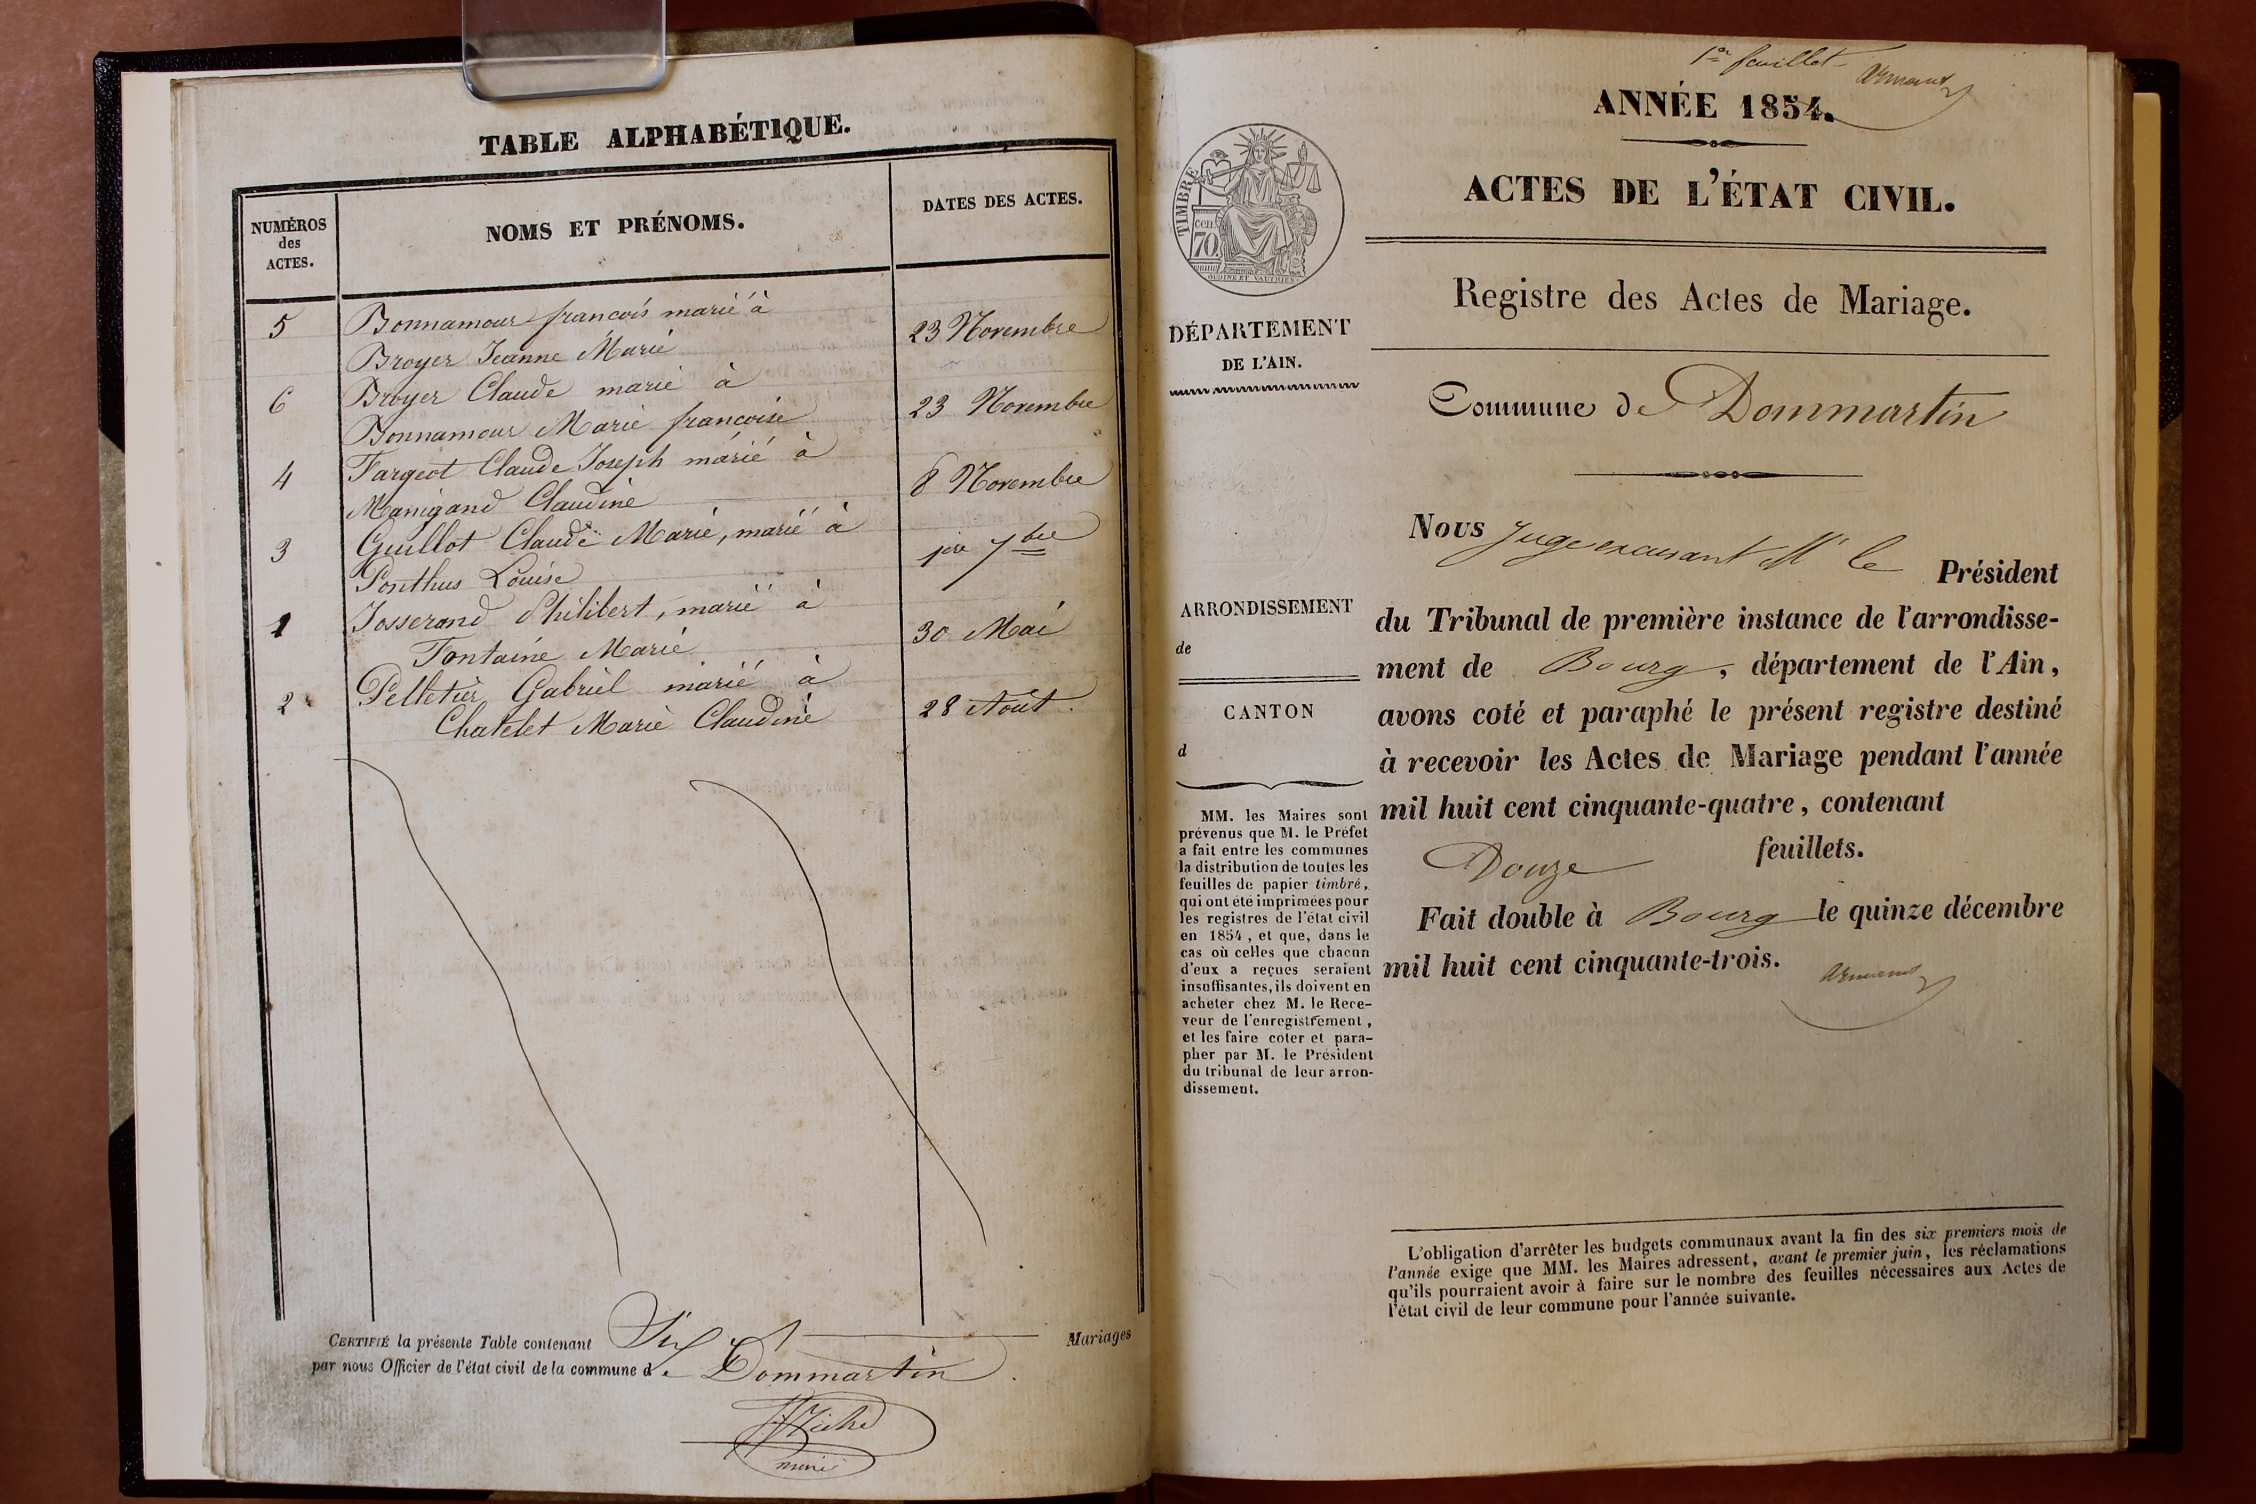 TABLE ALPHABÉTIQUE.
NUMÉROS
des
ACTES.
NOMS ET PRÉNOMS.
DATES DES ACTES.
5 Bonnamour francois marié à
Broyer Jeanne Marie
23 Novembre
6 Broyer Claude marié à
Bonnamour Marie francoise
23 Novembre
4 Fargeot Claude Joseph marié à
Manigand Claudine
8 Novembre
3 Guillot Claude Marie, marié à
Ponthus Louise
1er 7bre
1 Josserand Philibert, marié à
Fontaine Marie
30 Mai
2 Pelletier Gabriel marié à
Chatelet Marie Claudine
28 Aout.
CERTIFIÉ la présente Table contenant Six Mariages
par nous Officier de l'état civil de la commune de Dommartin
maire
1er feuillet
ANNÉE 1854.
ACTES DE L'ÉTAT CIVIL.
Registre des Actes de Mariage.
Commune de Dommartin
TIMBRE
CEN.
70.
OUDINÉ ET VAUTHIER
DÉPARTEMENT
DE L'AIN.
ARRONDISSEMENT
de
CANTON
d
MM. les Maires sont
prévenus que M. le Préfet
a fait entre les communes
la distribution de toutes les
feuilles de papier timbré,
qui ont été imprimées pour
les registres de l'état civil
en 1854, et que, dans le
cas où celles que chacun
d'eux a reçues seraient
insuffisantes, ils doivent en
acheter chez M. le Rece-
veur de l'enregistrement,
et les faire coter et para-
pher par M. le Président
du tribunal de leur arron-
dissement.
Nous Juge excusant Mr le Président
du Tribunal de première instance de l'arrondisse-
ment de Bourg, département de l'Ain,
avons coté et paraphé le présent registre destiné
à recevoir les Actes de Mariage pendant l'année
mil huit cent cinquante-quatre, contenant
Douze feuillets.
Fait double à Bourg le quinze décembre
mil huit cent cinquante-trois.
L'obligation d'arrêter les budgets communaux avant la fin des six premiers mois de
l'année exige que MM. les Maires adressent, avant le premier juin, les réclamations
qu'ils pourraient avoir à faire sur le nombre des feuilles nécessaires aux Actes de
l'état civil de leur commune pour l'année suivante.